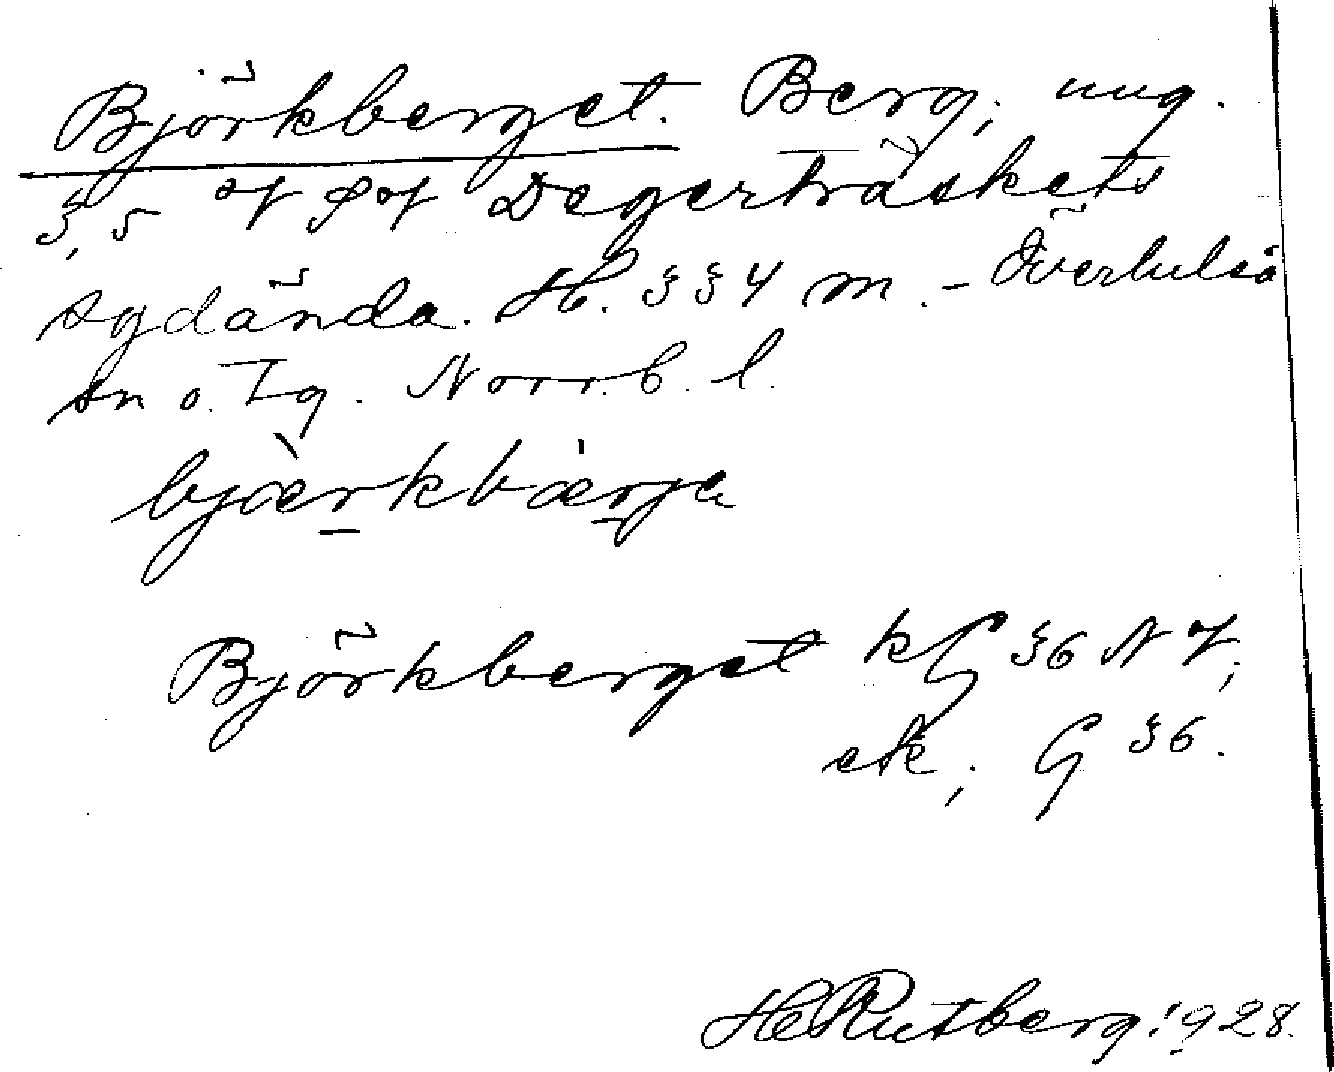 Björkberget. Berg, ung.
3,5 av S av Degerträskets
sydända. H. 334 m. - Överluleå
sn o. Tg. Norrb. l.
bjærkbærje
Björkberget kG 36 NV,
ek, G 36.
H Rutberg 1928.